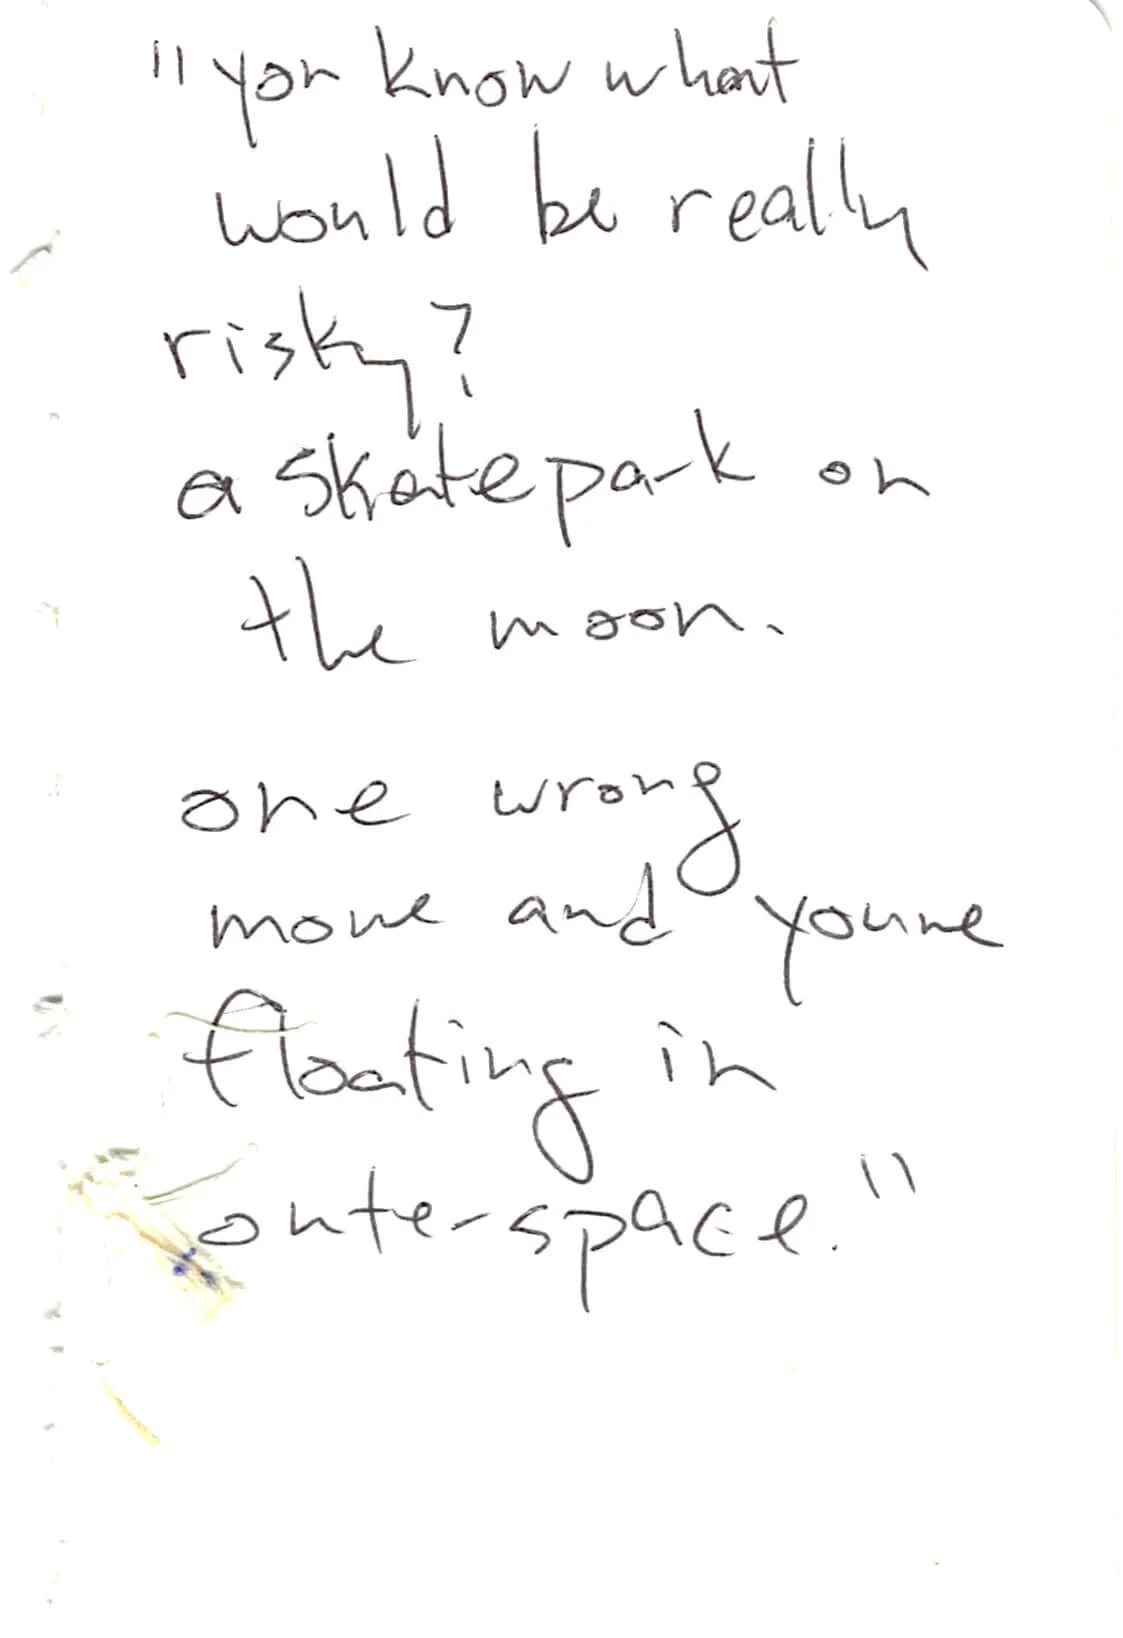 "you know what
would be really
risky?
a skatepark on
the moon.
one wrong
move and youre
floating in
outer space."